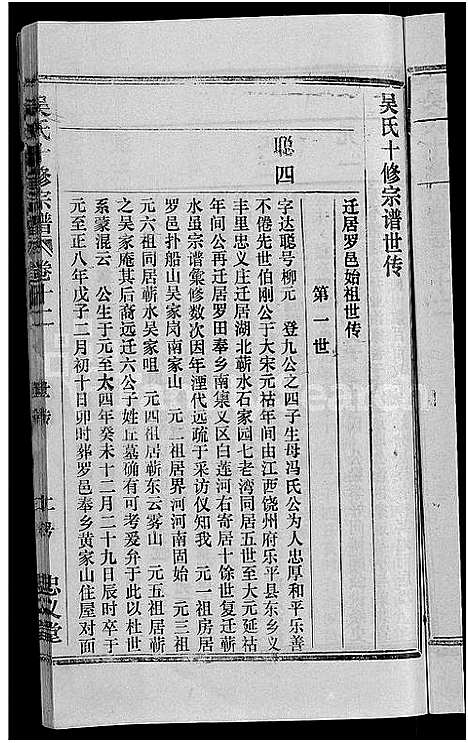 吴氏十修宗谱世传
迁居罗邑始祖世传
第一世
聪四
字达聪号柳元 登九公之四子生母冯氏公为人忠厚和平乐善
不倦先世伯刚公于大宋元祜年间由江西饶州府乐平县东乡义
丰里忠义庄迁居湖北蕲水石家园七老湾同居五世至大元延祜
年间公再迁居罗田奉乡南渠义区白莲河右寄居十馀世复迁蕲
水虽宗谱彙修数次因年湮代远疏于采访仅知我 元一祖房居
罗邑扑船山吴家岗南家山 元二祖居界河河南固始 元三祖
元六祖同居蕲水吴家咀 元四祖居蕲东云雾山 元五祖居蕲
之吴家庵其后裔远迁六公子姓丘墓确有可考爰弁于此以杜世
系豪混云 公生于元至大四年癸未十二月二十九日辰时卒于
元至正八年戊子二月初十日卯时葬罗邑奉乡黄家山住屋对面
吴氏十修宗谱
卷十二
世传
忠义堂